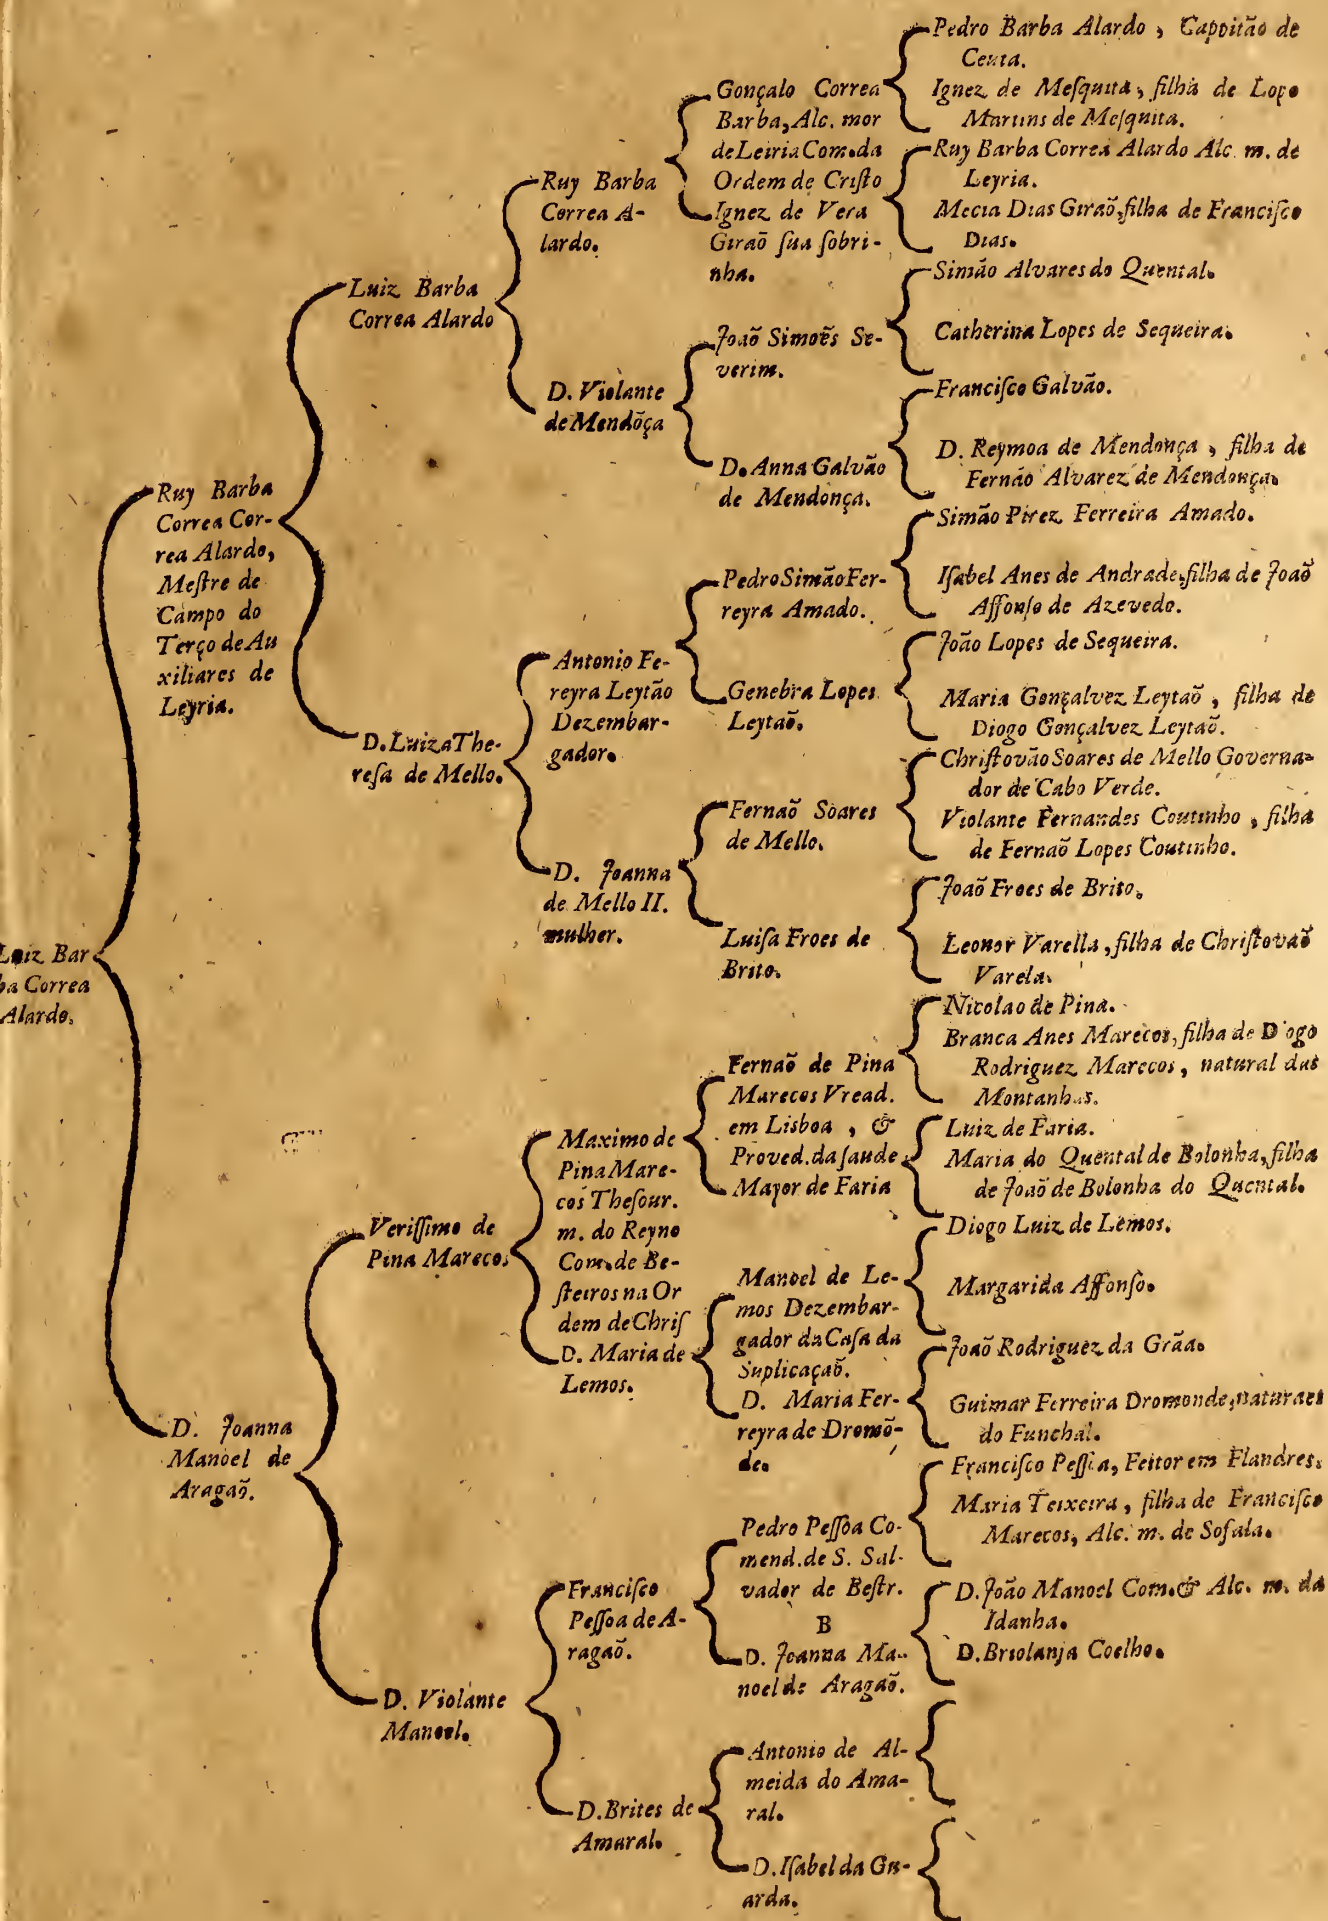 Luiz Bar
ba Correa
Alardo.
Ruy Barba
Correa Cor-
rea Alardo,
Meſtre de
Campo do
Terço de Au
xiliares de
Leyria.
D. Joanna
Manoel de
Aragaõ.
Luiz Barba
Correa Alardo
D. Luiza The-
reſa de Mello.
Veriſſimo de
Pina Marecos
D. Violante
Manoel.
Ruy Barba
Correa A-
lardo.
D. Violante
de Mendõça
Antonio Fe-
reyra Leytão
Dezembar-
gador.
D. Joanna
de Mello II.
mulher.
Maximo de
Pina Mare-
cos Theſour.
m. do Reyno
Com. de Be-
ſteiros na Or
dem de Chriſ
D. Maria de
Lemos.
Franciſco
Peſſoa de A-
ragaõ.
D. Brites de
Amaral.
Gonçalo Correa
Barba, Alc. mor
de Leiria Com. da
Ordem de Criſto
Ignez de Vera
Giraõ ſua ſobri-
nha.
Joaõ Simoẽs Se-
verim.
D. Anna Galvão
de Mendonça.
Pedro Simão Fer-
reyra Amado.
Genebra Lopes
Leytaõ.
Fernaõ Soares
de Mello.
Luiſa Froes de
Brito.
Fernaõ de Pina
Marecos Vread.
em Lisboa, &
Proved. da ſaude
Mayor de Faria
Manoel de Le-
mos Dezembar-
gador da Caſa da
Suplicaçaõ.
D. Maria Fer-
reyra de Dromõ-
de.
Pedro Peſſoa Co-
mend. de S. Sal-
vador de Beſtr.
B
D. Joanna Ma-
noel de Aragaõ.
Antonio de Al-
meida do Ama-
ral.
D. Iſabel da Gu-
arda.
Pedro Barba Alardo, Cappitão de
Ceuta.
Ignez de Meſquita, filha de Lopo
Martins de Meſquita.
Ruy Barba Correa Alardo Alc. m. de
Leyria.
Mecia Dias Giraõ, filha de Franciſco
Dias.
Simão Alvares do Quental.
Catherina Lopes de Sequeira.
Franciſco Galvão.
D. Reymoa de Mendonça, filha de
Fernão Alvarez de Mendonça.
Simão Pirez Ferreira Amado.
Iſabel Anes de Andrade, filha de Joaõ
Affonſo de Azevedo.
João Lopes de Sequeira.
Maria Gonçalvez Leytaõ, filha de
Diogo Gonçalvez Leytaõ.
Chriſtovão Soares de Mello Governa-
dor de Cabo Verde.
Violante Fernandes Coutinho, filha
de Fernaõ Lopes Coutinho.
Joaõ Froes de Brito.
Leonor Varella, filha de Chriſtovaõ
Varela.
Nicolao de Pina.
Branca Anes Marecos, filha de Diogo
Rodriguez Marecos, natural das
Montanhas.
Luiz de Faria.
Maria do Quental de Bolonha, filha
de Joaõ de Bolonha do Quental.
Diogo Luiz de Lemos.
Margarida Affonſo.
Joaõ Rodriguez da Grãa.
Guimar Ferreira Dromonde, naturaes
do Funchal.
Franciſco Peſſoa, Feitor em Flandres.
Maria Teixeira, filha de Franciſco
Marecos, Alc. m. de Sofala.
D. João Manoel Com. & Alc. m. da
Idanha.
D. Briolanja Coelho.